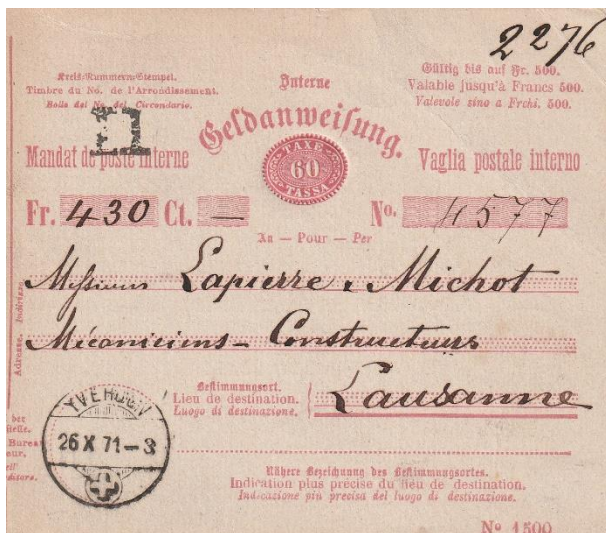 2276
Kreis-Nummern-Stempel.
Timbre du No. de l'Arrondissement.
Bollo del No. del Circondario.
Interne
Gültig bis auf Fr. 500.
Valable jusqu'à Francs 500.
Valevole sino a Frchi. 500.
Geldanweisung.
Mandat de poste interne
TAXE
60
TASSA
Vaglia postale interno
Fr. 430 Ct. — No. 4577
An — Pour — Per
Messieurs Lapierre & Michot
Mécaniciens - Constructeurs
Adresse. Indirizzo
Bestimmungsort.
Lieu de destination.
Luogo di destinazione.
Lausanne
YVERDON
26 X 71 - 3
der
Bureau
Nähere Bezeichnung des Bestimmungsortes.
Indication plus précise du lieu de destination.
Indicazione più precisa del luogo di destinazione.
No 1500